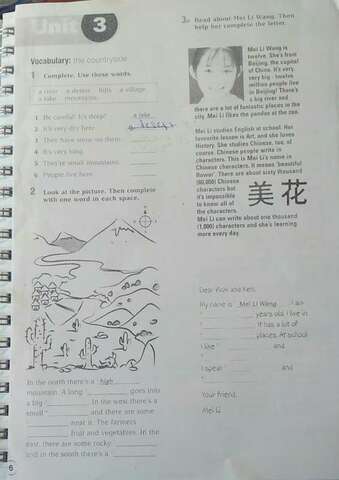 Unit 3
Vocabulary: the countryside
1 Complete. Use these words.
a river a desert hills a village
a lake mountains
1 Be careful! It's deep! a lake
2 It's very dry here. a desert
3 They have snow on them.
4 It's very long.
5 They're small mountains.
6 People live here.
2 Look at the picture. Then complete
with one word in each space.
In the north there's a high
mountain. A long goes into
a big . In the west there's a
small and there are some
near it. The farmers
fruit and vegetables. In the
east, there are some rocky
and in the south there's a
6
3 Read about Mei Li Wang. Then
help her complete the letter.
Mei Li Wang is
twelve. She's from
Beijing, the capital
of China. It's very
very big - twelve
million people live
in Beijing! There's
a big river and
there are a lot of fantastic places in the
city. Mei Li likes the pandas at the zoo.
Mei Li studies English at school. Her
favourite lesson is Art, and she loves
History. She studies Chinese, too, of
course. Chinese people write in
characters. This is Mei Li's name in
Chinese characters. It means 'beautiful
flower'. There are about sixty thousand
(60,000) Chinese
characters but
it's impossible
to know all of
the characters.
美花
Mei Li can write about one thousand
(1,000) characters and she's learning
more every day.
Dear Vicki and Ken,
My name is Mei Li Wang. I am
years old. I live in
. It has a lot of
places. At school
I like and
I speak and
Your friend,
Mei Li